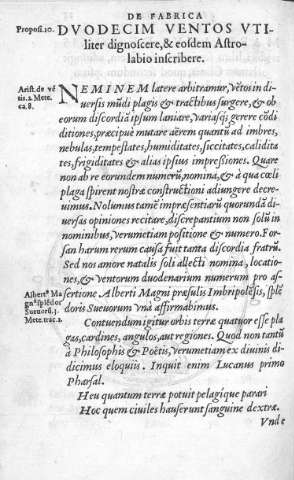 DE FABRICA
Proposi.10. DVODECIM VENTOS VTI-
liter dignoscere, & eosdem Astro-
labio inscribere.
Arist. de vē
tis.2. Mete.
ca.8.
NEMINEM latere arbitramur, vētos in di-
uersis mūdi plagis & tractibus surgere, & ob
eorum discordiā ipsum laniare, variasq; gerere cōdi
ditiones, præcipuè mutare aërem quantū ad imbres,
nebulas, tempestates, humiditates, siccitates, calidita
tes, frigiditates & alias ipsius impreßiones. Quare
non ab re eorundem numerū, nomina, & à qua cœli
plaga spirent nostræ constructioni adiungere decre-
uimus. Nolumus tamē impræsentiarū quorundā di-
uersas opiniones recitare, discrepantium non solū in
nominibus, verumetiam positione & numero. For-
san harum rerum causa fuit tanta discordia fratrū.
Sed nos amore natalis soli allecti nomina, locatio-
nes, & ventorum duodenarium numerum pro as-
sertione Alberti Magni præsulis Imbripolēsis, splē
doris Sueuorum vnà affirmabimus.
Albertᵘ Ma
gnᵘ splēdor
Sueuorū.3.
Mete. trac.1.
Contuendum igitur orbis terræ quatuor esse pla
gas, cardines, angulos, aut regiones. Quod non tantū
à Philosophis & Poëtis, verumetiam ex diuinis di-
dicimus eloquiis. Inquit enim Lucanus primo
Pharsal.
Heu quantum terræ potuit pelagique parari
Hoc quem ciuiles hauserunt sanguine dextræ.
Vnde